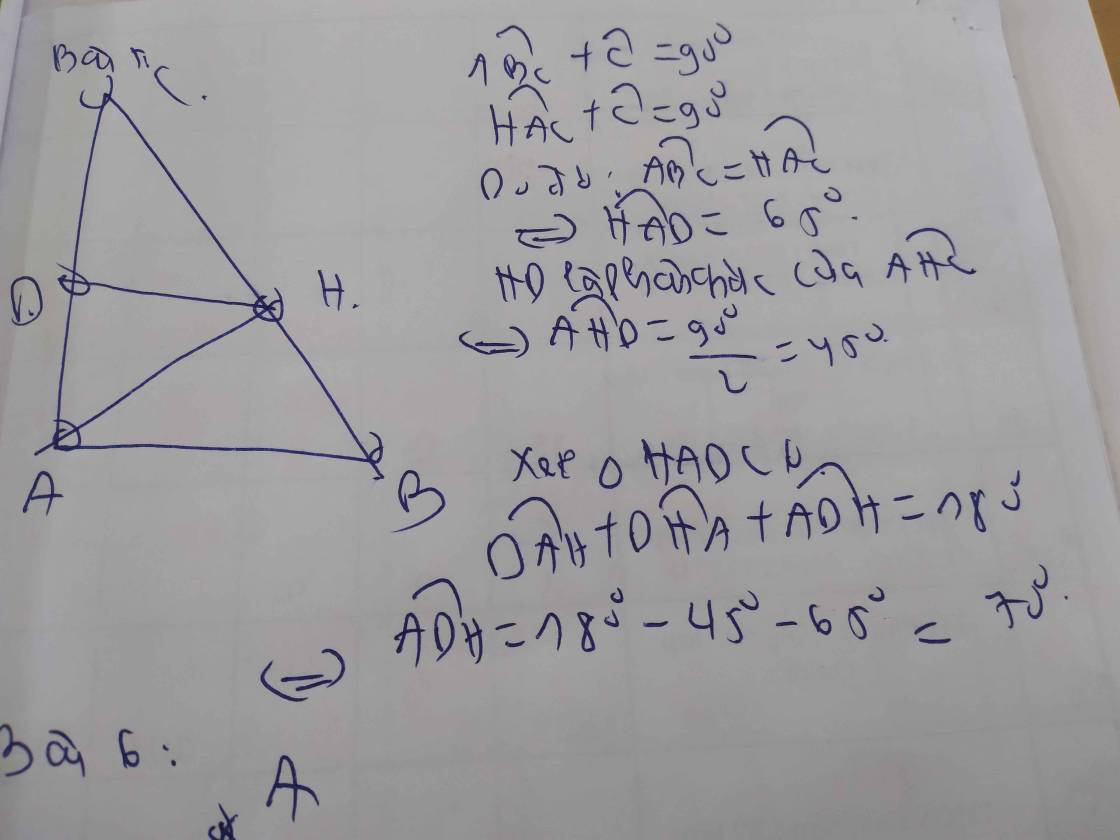 Bài 5
C
D
H.
A
B
ABC + C = 90°
HAC + C = 90°
Do đó : ABC = HAC
<=> HAD = 65°.
HD là phân giác của AHC
<=> AHD = 90°/2 = 45°.
Xét △ HAD có
DAH + DHA + ADH = 180°
<=> ADH = 180° - 45° - 65° = 70°.
Bài 6 :
A